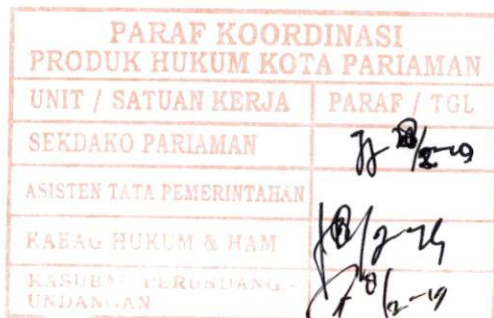 PARAF KOORDINASI
PRODUK HUKUM KOTA PARIAMAN
UNIT / SATUAN KERJA PARAF / TGL
SEKDAKO PARIAMAN
ASISTEN TATA PEMERINTAHAN
KABAG HUKUM & HAM
KASUBAG PERUNDANG -
UNDANGAN